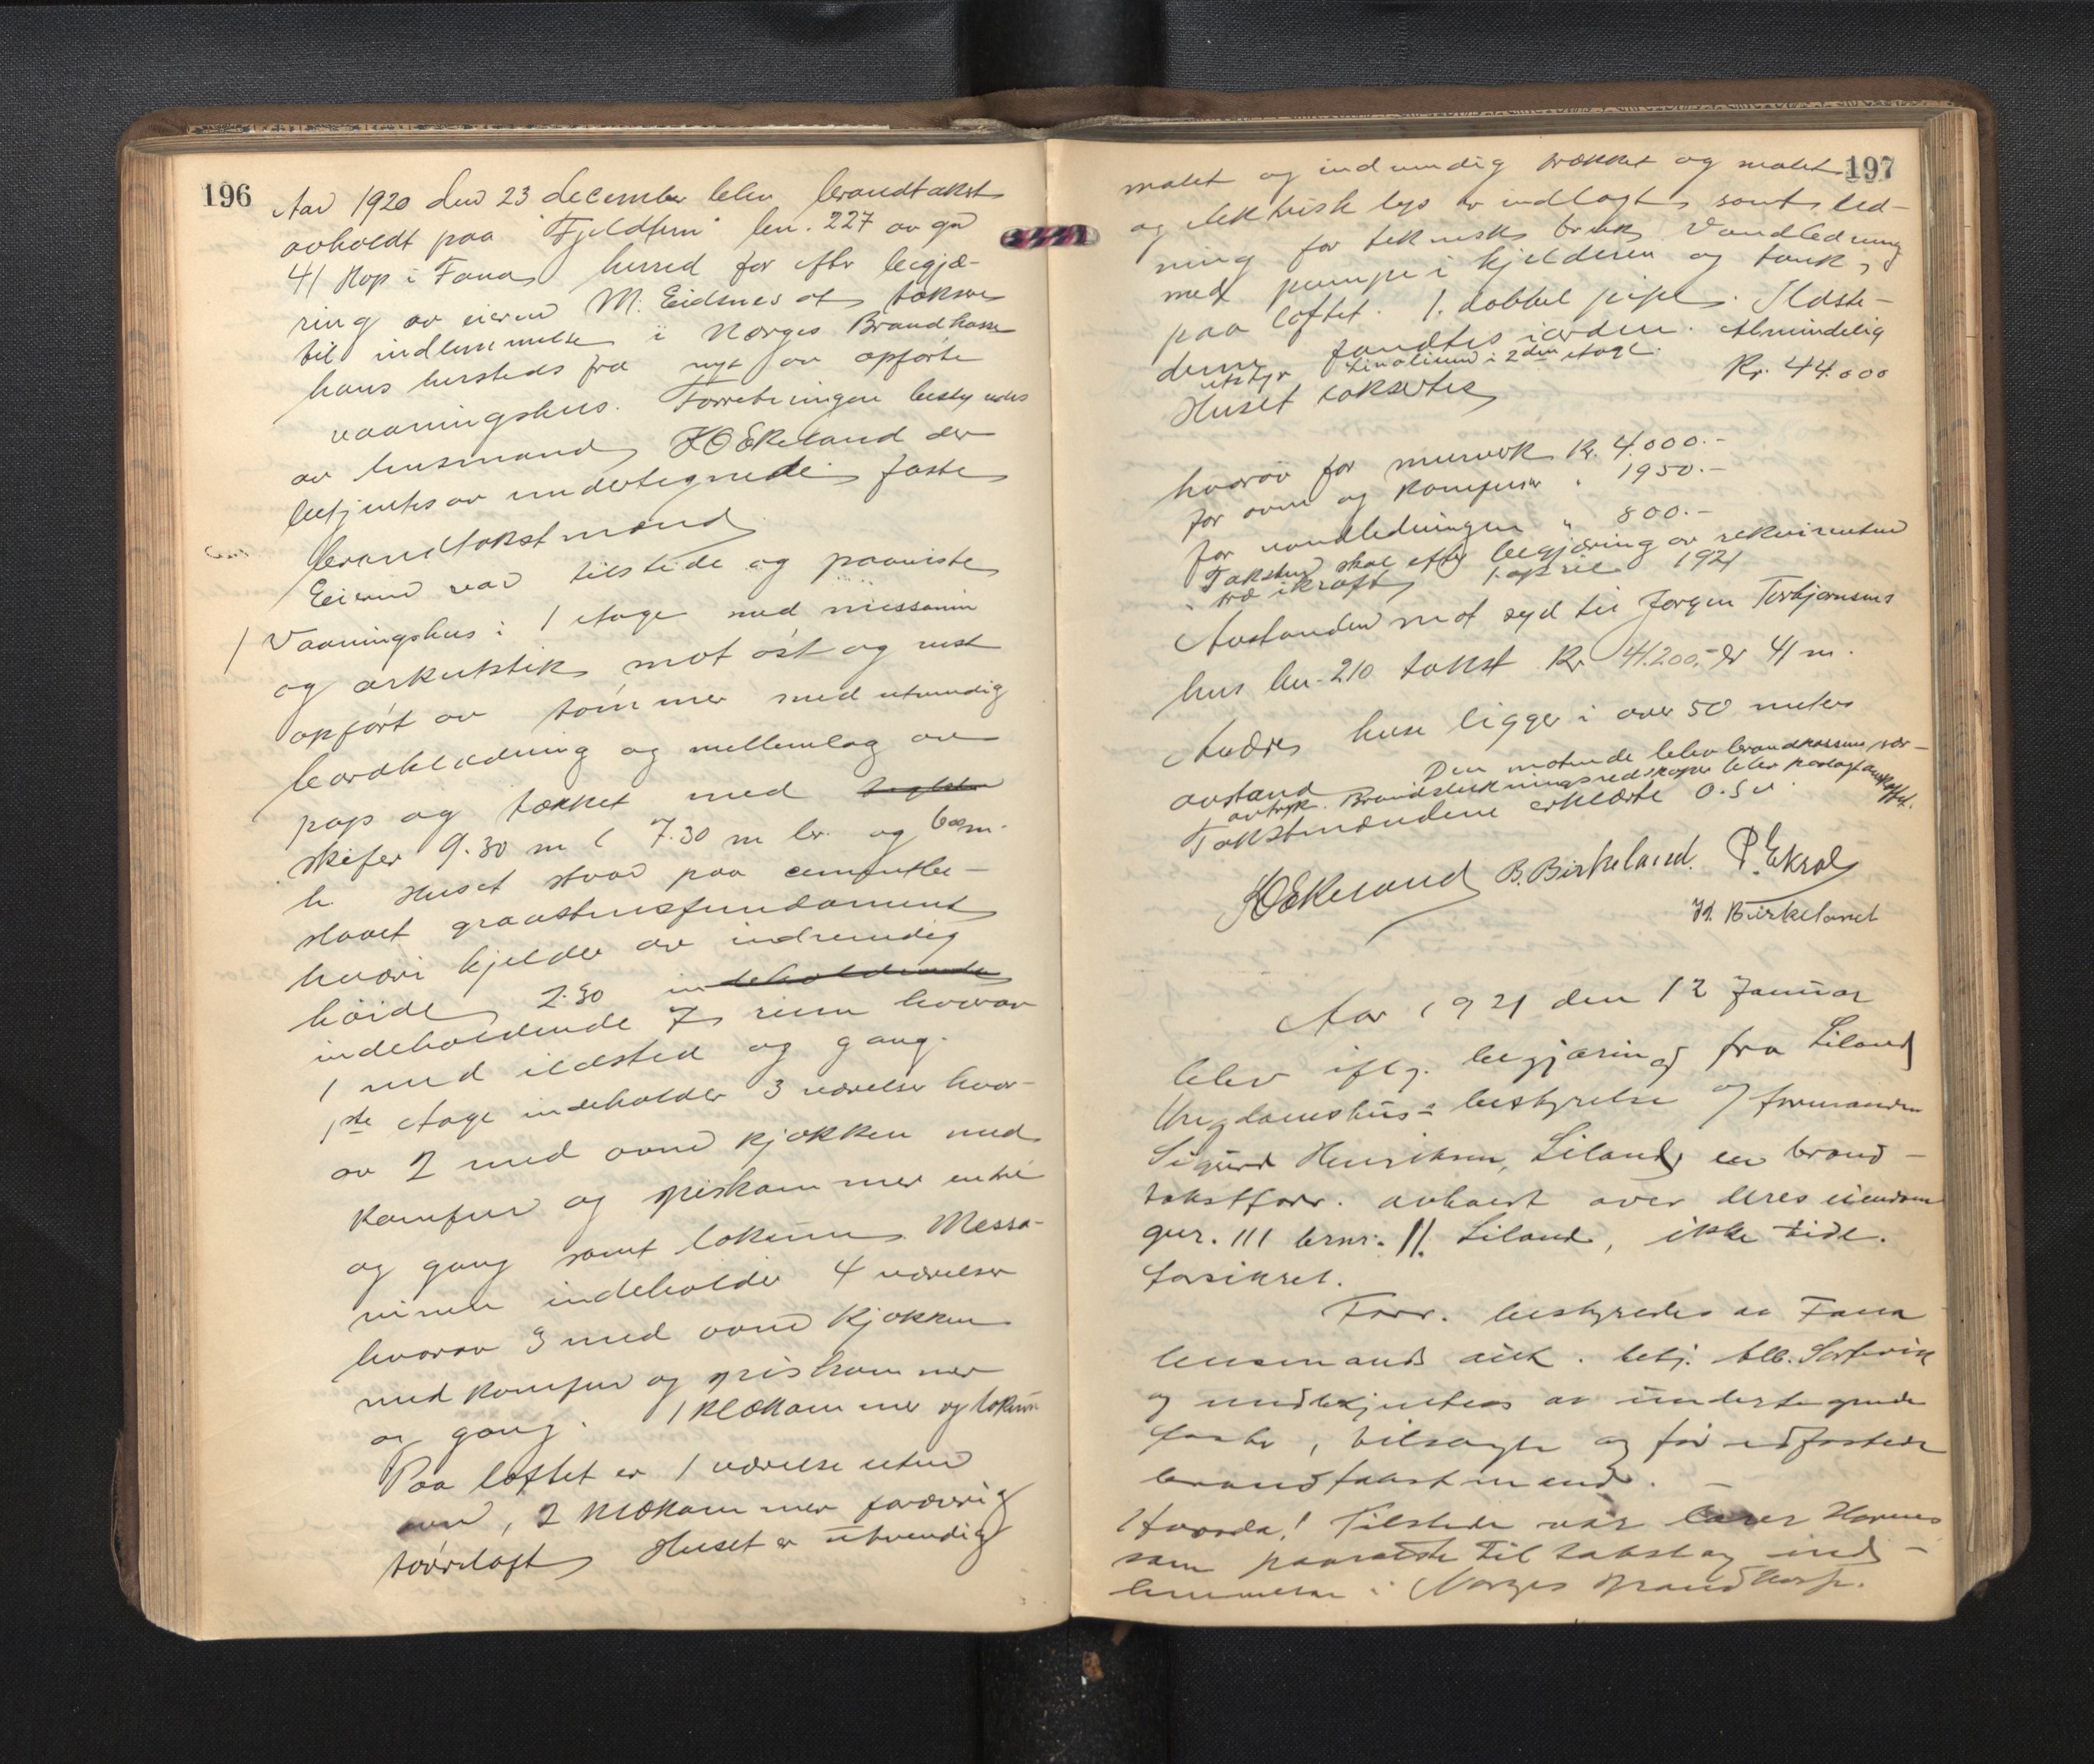 196
Aar 1920 den 23 december blev brandtakst
avholdt paa "Fjeldtun" bn. 227 av gn
41 Hop i Fana herred for efter begjæ-
ring av eieren M. Eidsnes at taksere
til indlemmelse i Norges Brandkasse
hans hersteds fra nyt av opførte
vaaningshus. Forretningen bestyredes
av lensmand J O Ekeland der
betjentes av undertegnede faste
brandtakstmænd
Eieren var tilstede og paaviste
1 Vaaningshus: 1 etage med messanin
og arkutstik mot øst og vest
opført av tømmer med utvendig
bordklædning og mellemlag av
pap og tækket med
skifer 9.30 m l 7.30 m br. og 6 m.
h. Huset staar paa cementbe-
slaaet graastensfundament
hvori kjelder av indvendig
høide 2.30 indeholdende
indeholdende 7 rum hvorav
1 med ildsted og gang.
1ste etage indeholder 3 værelser hvor-
av 2 med ovne kjøkken med
komfur og spiskammer entré
og gang samt lokum. Messa-
ninen indeholder 4 værelser
hvorav 3 med ovne kjøkken
med komfur og spiskammer
og gang. 1 klækammer og lokum
Paa loftet er 1 værelse uten
ovn, 2 klækammer forøvrig
tørreloft Huset er utvendig
197
malet og indvendig trækket og malet
og elektrisk lys er indlagt samt led-
ning for teknisk bruk. Vandledning
med pumpe i kjelderen og tank
paa loftet. 1. dobbel pipe. Ildste-
dene fandtes iorden. Almindelig
utstyr Linolium i 2den etage.
Huset takseres Kr. 44.000
hvorav for murverk Kr. 4.000.-
for ovne og komfurer " 1950.-
for vandledningen " 800.-
Taksten skal efter begjæring av rekvirenten
træ ikraft 1. april 1921
Avstanden mot syd til Jørgen Torbjørnsens
hus bn. 210 takst Kr. 41.200,- er 41 m.
Andre huse ligger i over 50 meters
avstand Den møtende blev brandkassens sær-
avtryk. Brandslukningsredskaper blev paalagt anskaffet.
Takstmændene erklærte o.s.v.
J O Ekeland B. Birkeland. P. Ekrol
H. Birkeland
Aar 1921 den 12 Januar
blev iflg. begjæring fra Liland
Ungdomshus' bestyrelse v/ formanden
Sigurd Henriksen, Liland en brand-
takstforr. avholdt over deres eiendom
gnr. 111 brnr. 11. Liland, ikke tidl.
forsikret.
Forr. bestyredes av Fana
lensmands aut. betj. Alb. Sørfonn
og medbetjentes av undertegnede
faste, tilsagte og før edfæstede
brandtakstmænd. -
Hvorda! Tilstede var lærer
som paaviste til takst og ind-
lemmelse i Norges Brandkasse.